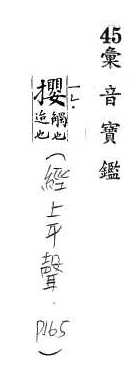 45彙音寶鑑
攖觸也迫也
(經上平聲.P165)